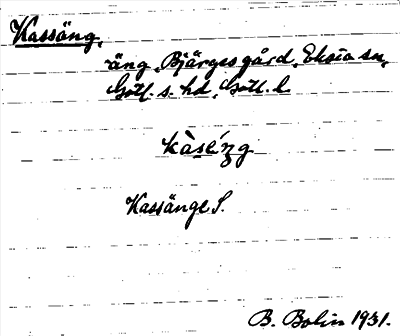 Kassäng,
äng, Bjärges gård, Eksta sn,
Gotl. s. hd, Gotl. l.
kàsèng
Kassänge S.
B. Bolin 1931.